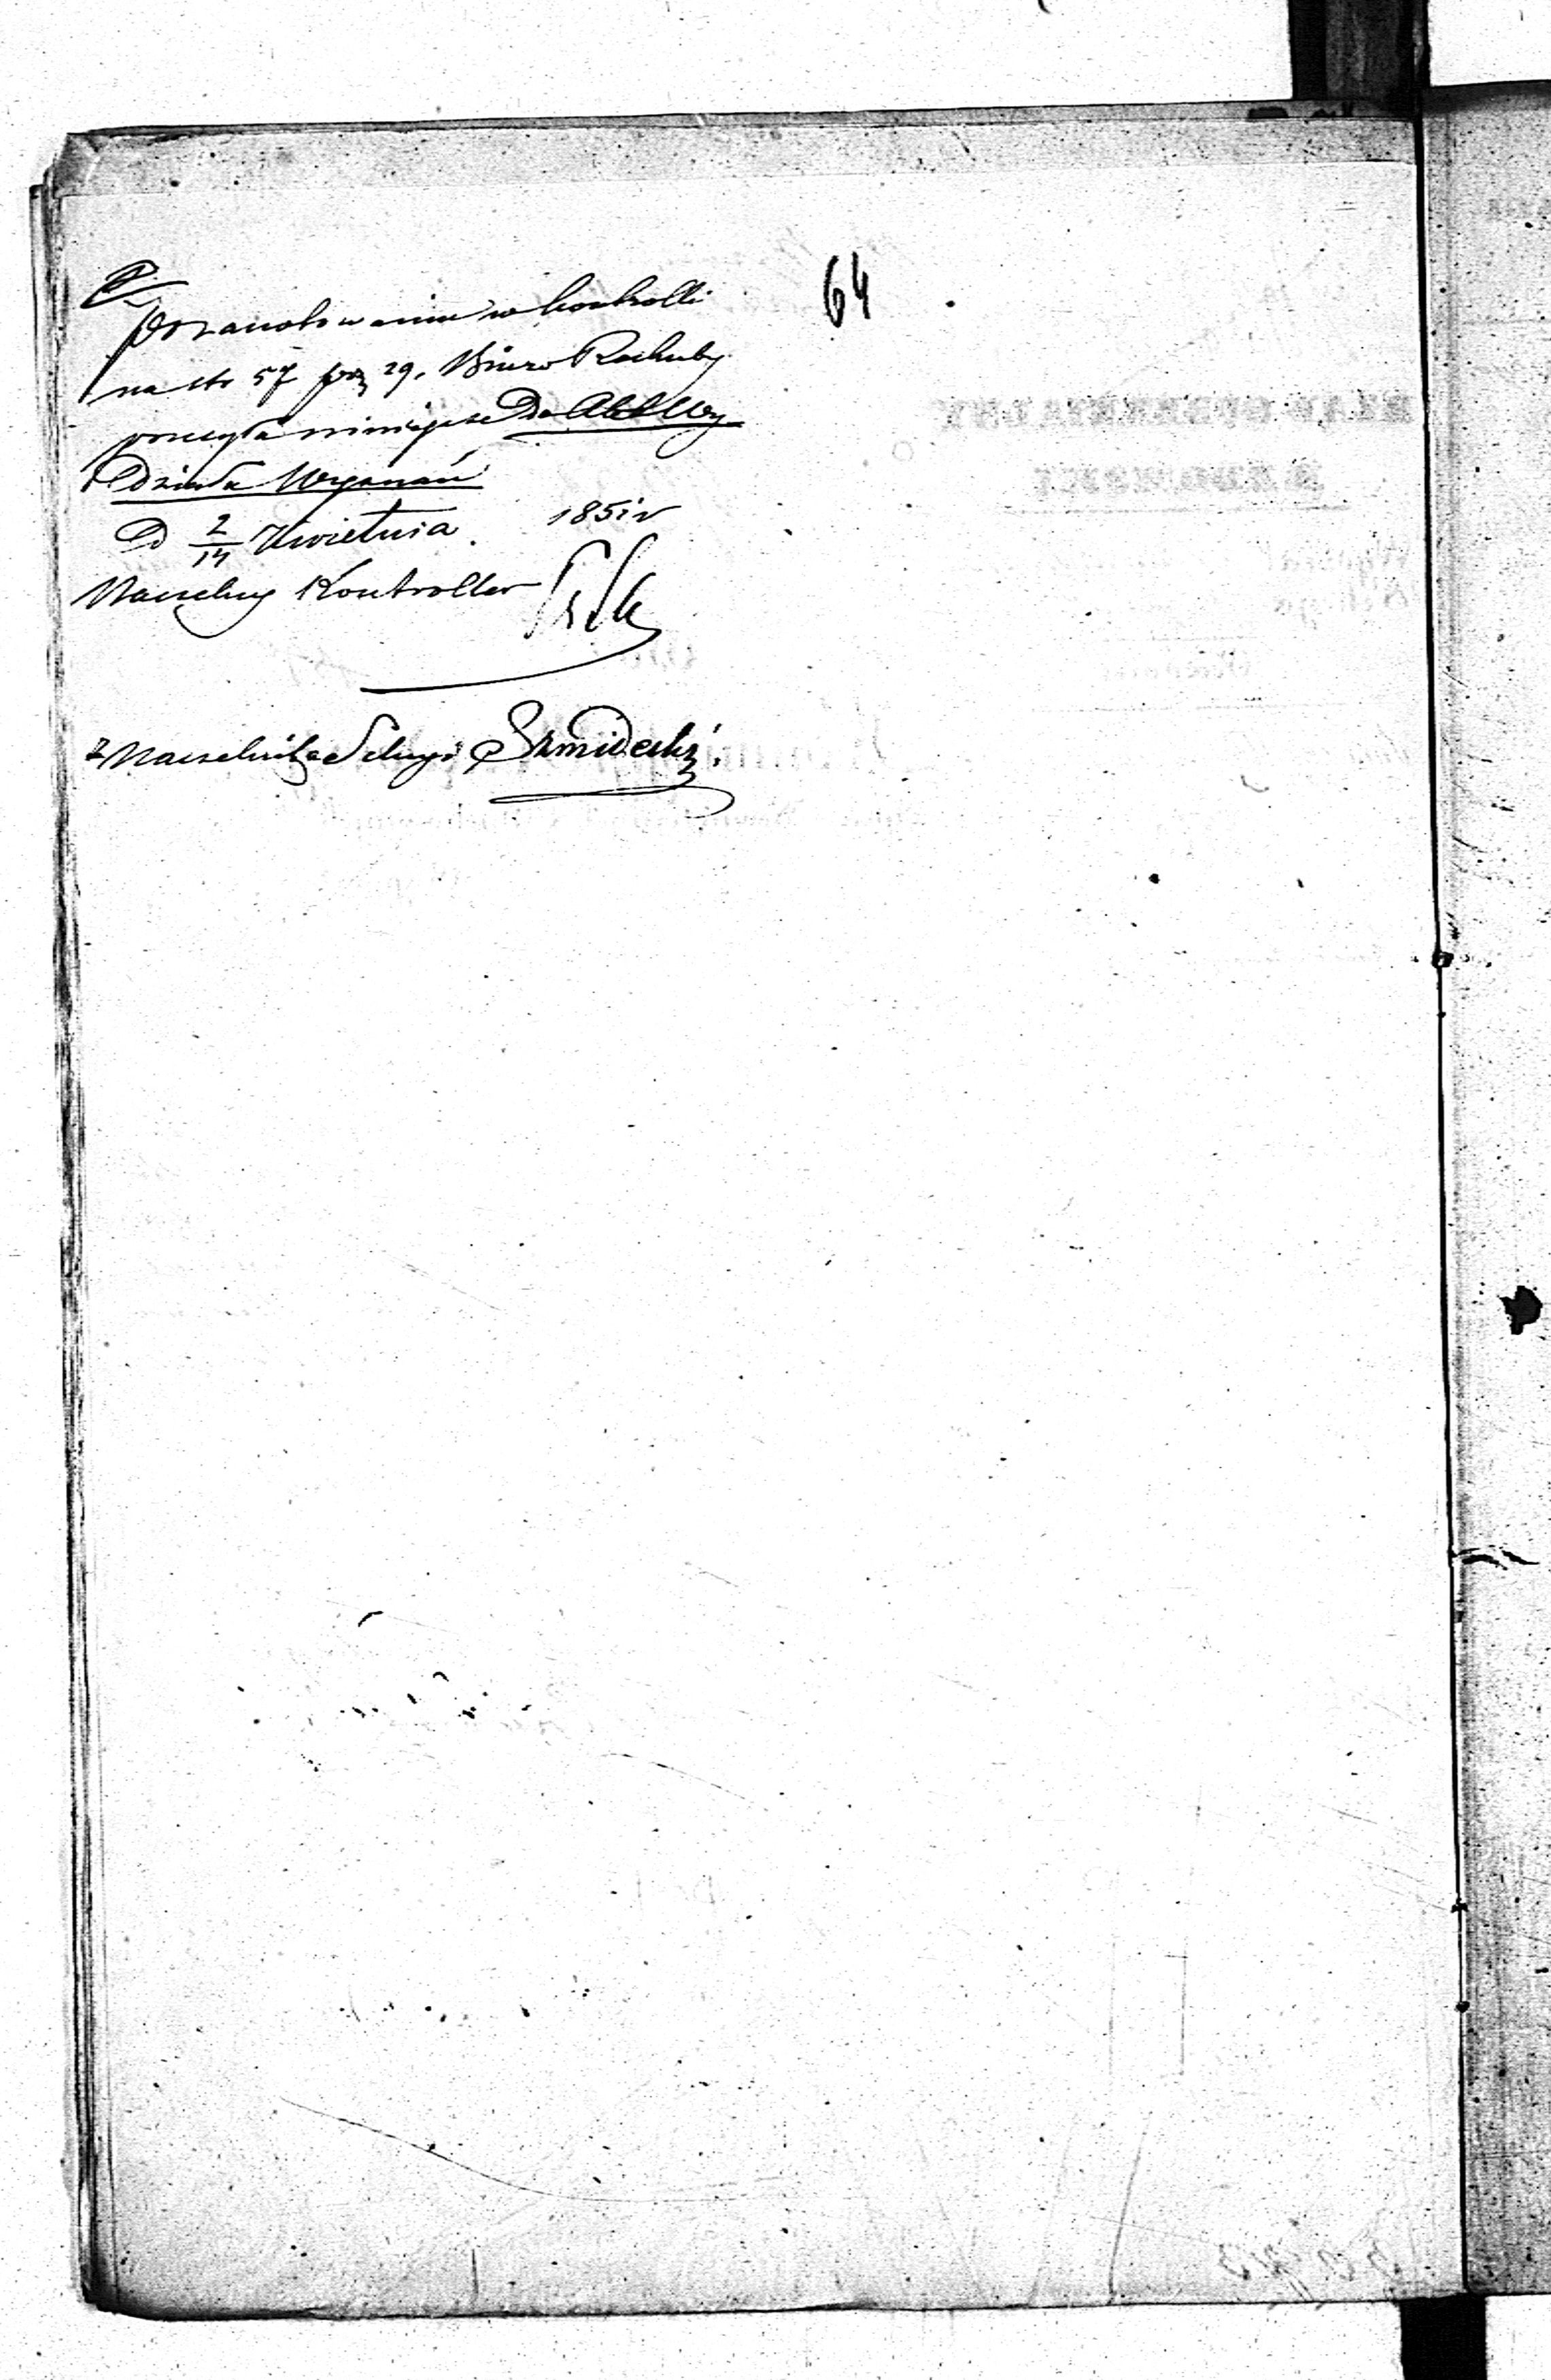 64
Po zanotowaniu w kontrolli
na str 57 poz 29. Biuro Rachuby
przesyła niniejsze Do
Działu Wyznań
D 2/14 Kwietnia 1851 r
Naczelny Kontroller
Naczelnika Sekcyi